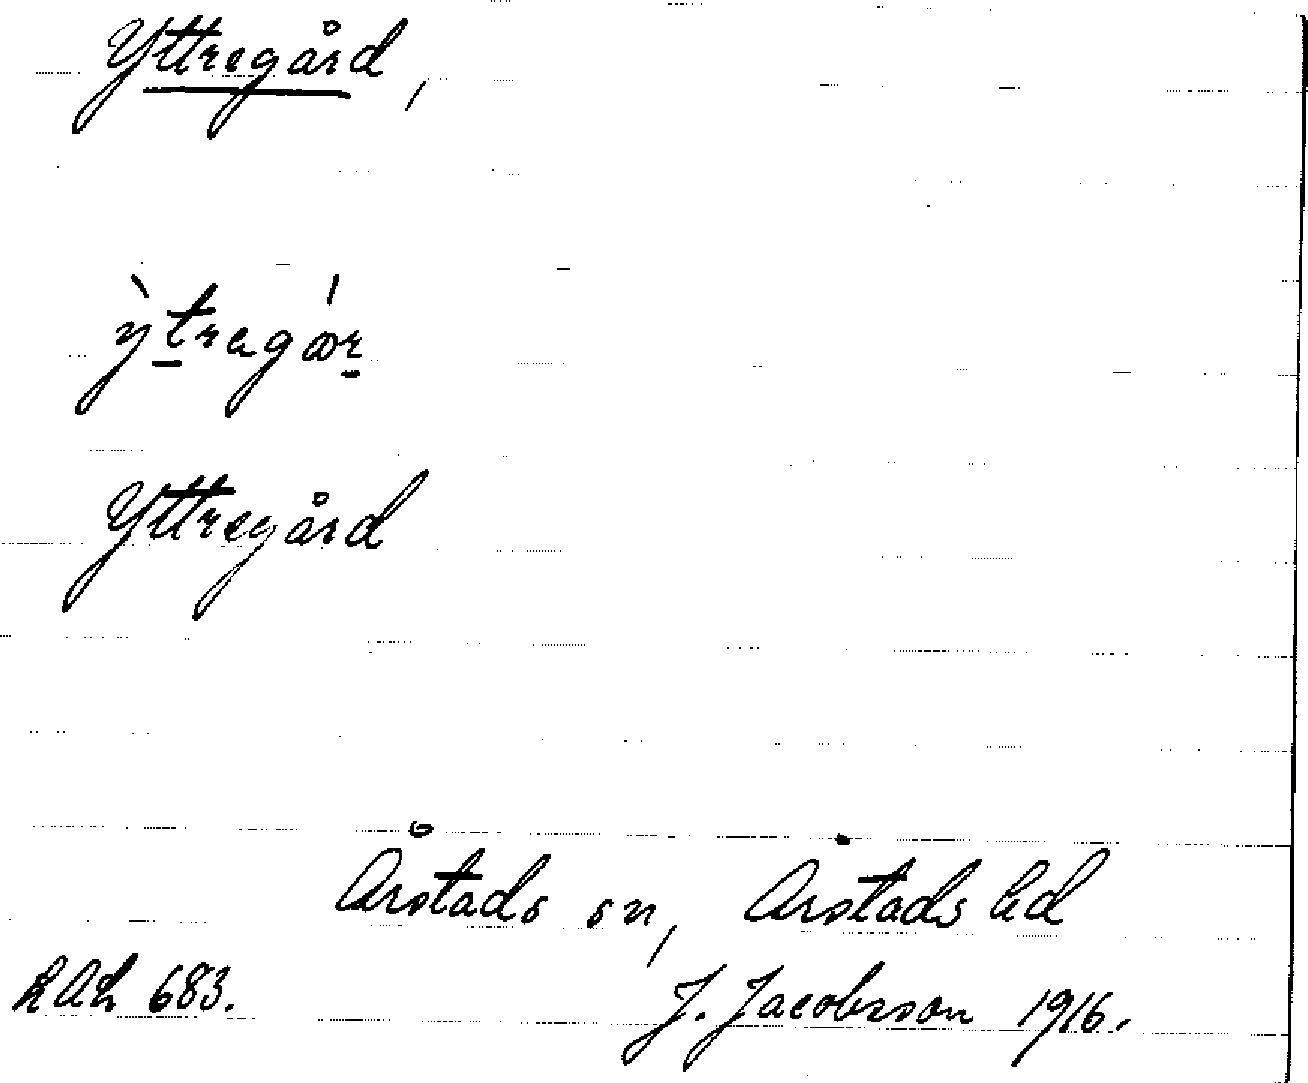 Yttregård,
ỳtragór
Yttregård
Årstads sn, Årstads hd
683.
J. Jacobsson 1916.